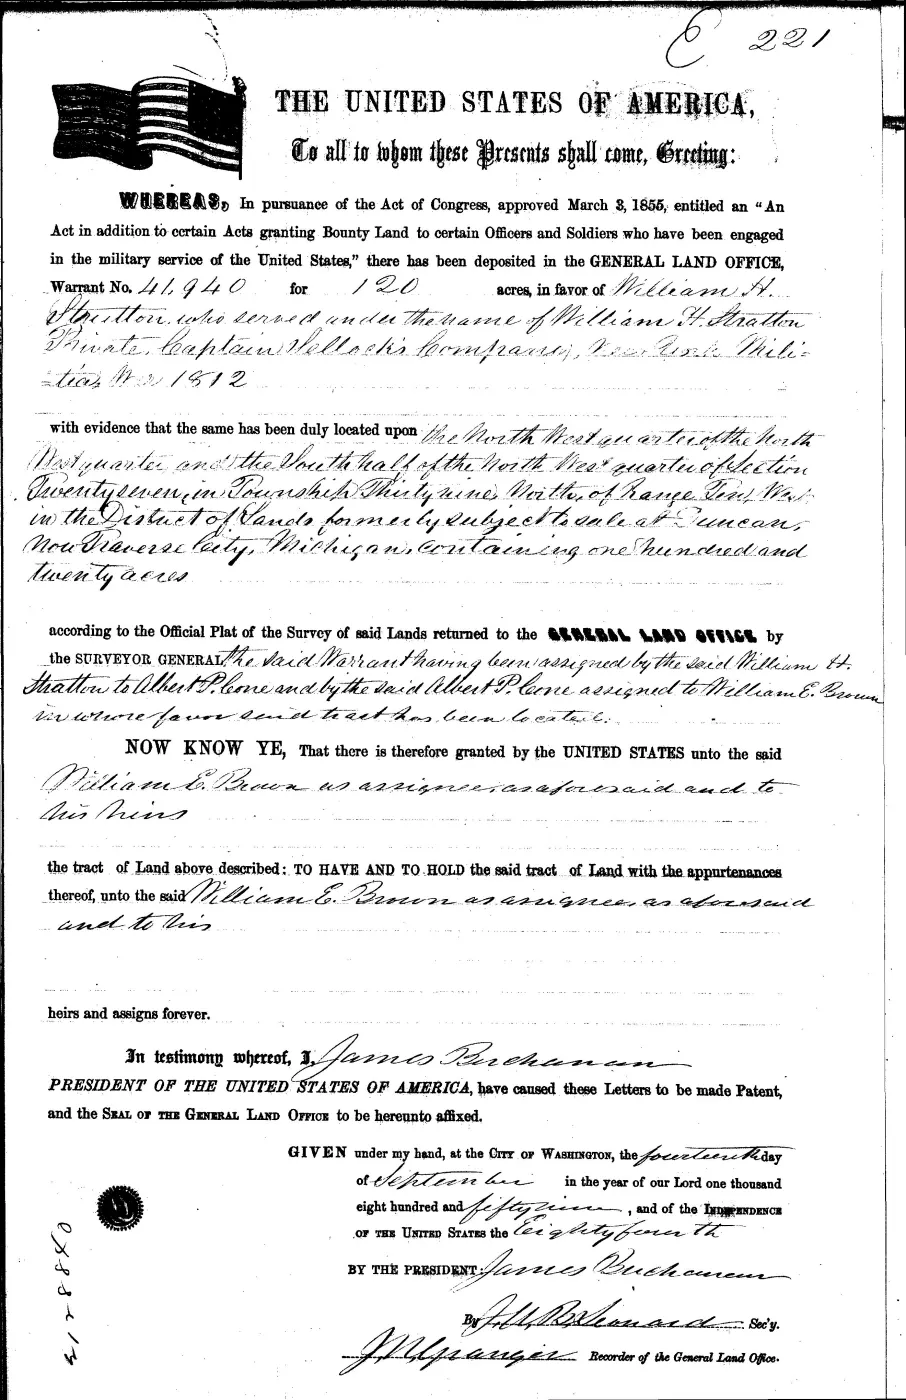 E 221
THE UNITED STATES OF AMERICA,
To all to whom these Presents shall come, Greeting:
WHEREAS, In pursuance of the Act of Congress, approved March 3, 1855, entitled an "An
Act in addition to certain Acts granting Bounty Land to certain Officers and Soldiers who have been engaged
in the military service of the United States," there has been deposited in the GENERAL LAND OFFICE,
Warrant No. 41,940 for 120 acres, in favor of William H.
who served under the name of William H. Stratton
Private, Captain Company, New York Mili-
tia, War 1812
with evidence that the same has been duly located upon the North West quarter of the North
West quarter and the South half of the North West quarter of Section
Twenty seven, in Township Thirty nine North, of Range Ten West
in the District of Lands formerly subject to sale at Duncan,
now Traverse City, Michigan, containing one hundred and
twenty acres
according to the Official Plat of the Survey of said Lands returned to the GENERAL LAND OFFICE by
the SURVEYOR GENERAL the said Warrant having been assigned by the said William H.
Stratton to Albert P. Cone and by the said Albert P. Cone assigned to William E. Brown
in whose favor said tract has been located.
NOW KNOW YE, That there is therefore granted by the UNITED STATES unto the said
William E. Brown as assignee as aforesaid and to
his heirs
the tract of Land above described: TO HAVE AND TO HOLD the said tract of Land with the appurtenances
thereof, unto the said William E. Brown as assignee as aforesaid
and to his
heirs and assigns forever.
In testimony whereof, I, James Buchanan
PRESIDENT OF THE UNITED STATES OF AMERICA, have caused these Letters to be made Patent,
and the SEAL OF THE GENERAL LAND OFFICE to be hereunto affixed.
GIVEN under my hand, at the CITY OF WASHINGTON, the fourteenth day
of September in the year of our Lord one thousand
eight hundred and fifty nine, and of the INDEPENDENCE
OF THE UNITED STATES the Eighty fourth
BY THE PRESIDENT: James Buchanan
By Leonard Sec'y.
J. N. Granger Recorder of the General Land Office.